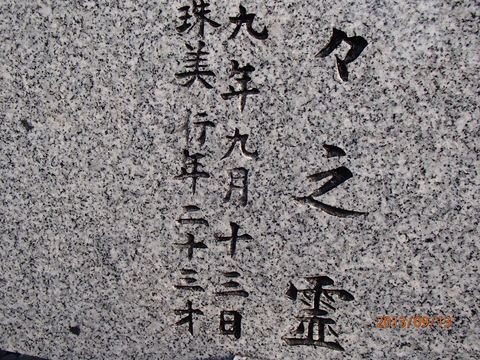 々之霊
九年九月十三日
珠美 行年二十三才